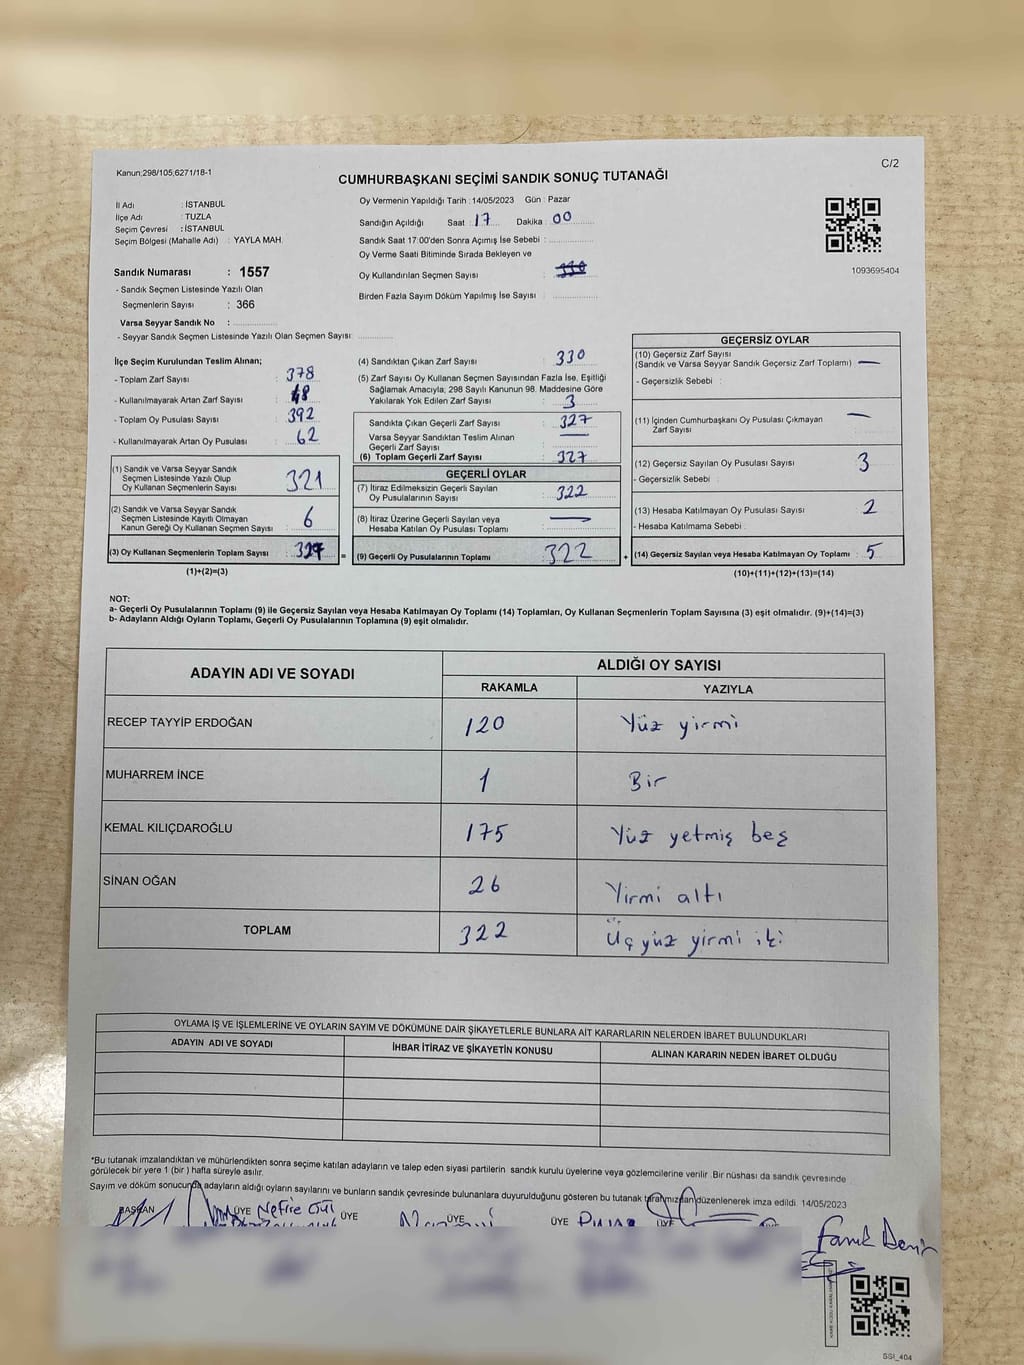 Kanun;298/105,6271/18-1
C/2
CUMHURBAŞKANI SEÇİMİ SANDIK SONUÇ TUTANAĞI
İl Adı : İSTANBUL
İlçe Adı : TUZLA
Seçim Çevresi : İSTANBUL
Seçim Bölgesi (Mahalle Adı) : YAYLA MAH.
Sandık Numarası : 1557
- Sandık Seçmen Listesinde Yazılı Olan
Seçmenlerin Sayısı : 366
Varsa Seyyar Sandık No :
- Seyyar Sandık Seçmen Listesinde Yazılı Olan Seçmen Sayısı:
Oy Vermenin Yapıldığı Tarih : 14/05/2023 Gün : Pazar
Sandığın Açıldığı Saat : 17 Dakika : 00
Sandık Saat 17:00'den Sonra Açımış İse Sebebi :
Oy Verme Saati Bitiminde Sırada Bekleyen ve
Oy Kullandırılan Seçmen Sayısı :
Birden Fazla Sayım Döküm Yapılmış İse Sayısı :
1093695404
İlçe Seçim Kurulundan Teslim Alınan;
- Toplam Zarf Sayısı : 378
- Kullanılmayarak Artan Zarf Sayısı : 48
- Toplam Oy Pusulası Sayısı : 392
- Kullanılmayarak Artan Oy Pusulası : 62
(1) Sandık ve Varsa Seyyar Sandık
Seçmen Listesinde Yazılı Olup
Oy Kullanan Seçmenlerin Sayısı : 321
(2) Sandık ve Varsa Seyyar Sandık
Seçmen Listesinde Kayıtlı Olmayan
Kanun Gereği Oy Kullanan Seçmen Sayısı : 6
(3) Oy Kullanan Seçmenlerin Toplam Sayısı : 327 =
(1)+(2)=(3)
(4) Sandıktan Çıkan Zarf Sayısı : 330
(5) Zarf Sayısı Oy Kullanan Seçmen Sayısından Fazla İse, Eşitliği
Sağlamak Amacıyla; 298 Sayılı Kanunun 98. Maddesine Göre
Yakılarak Yok Edilen Zarf Sayısı : 3
Sandıkta Çıkan Geçerli Zarf Sayısı : 327
Varsa Seyyar Sandıktan Teslim Alınan
Geçerli Zarf Sayısı : —
(6) Toplam Geçerli Zarf Sayısı : 327
GEÇERLİ OYLAR
(7) İtiraz Edilmeksizin Geçerli Sayılan
Oy Pusulalarının Sayısı : 322
(8) İtiraz Üzerine Geçerli Sayılan veya
Hesaba Katılan Oy Pusulaları Toplamı : —
(9) Geçerli Oy Pusulalarının Toplamı : 322 +
GEÇERSİZ OYLAR
(10) Geçersiz Zarf Sayısı
(Sandık ve Varsa Seyyar Sandık Geçersiz Zarf Toplamı) : —
- Geçersizlik Sebebi :
(11) İçinden Cumhurbaşkanı Oy Pusulası Çıkmayan
Zarf Sayısı : —
(12) Geçersiz Sayılan Oy Pusulası Sayısı : 3
- Geçersizlik Sebebi :
(13) Hesaba Katılmayan Oy Pusulası Sayısı : 2
- Hesaba Katılmama Sebebi :
(14) Geçersiz Sayılan veya Hesaba Katılmayan Oy Toplamı : 5
(10)+(11)+(12)+(13)=(14)
NOT:
a- Geçerli Oy Pusulalarının Toplamı (9) ile Geçersiz Sayılan veya Hesaba Katılmayan Oy Toplamı (14) Toplamları, Oy Kullanan Seçmenlerin Toplam Sayısına (3) eşit olmalıdır. (9)+(14)=(3)
b- Adayların Aldığı Oyların Toplamı, Geçerli Oy Pusulalarının Toplamına (9) eşit olmalıdır.
ADAYIN ADI VE SOYADI ALDIĞI OY SAYISI
RAKAMLA YAZIYLA
RECEP TAYYİP ERDOĞAN 120 Yüz yirmi
MUHARREM İNCE 1 Bir
KEMAL KILIÇDAROĞLU 175 Yüz yetmiş beş
SİNAN OĞAN 26 Yirmi altı
TOPLAM 322 Üç yüz yirmi iki
OYLAMA İŞ VE İŞLEMLERİNE VE OYLARIN SAYIM VE DÖKÜMÜNE DAİR ŞİKAYETLERLE BUNLARA AİT KARARLARIN NELERDEN İBARET BULUNDUKLARI
ADAYIN ADI VE SOYADI İHBAR İTİRAZ VE ŞİKAYETİN KONUSU ALINAN KARARIN NEDEN İBARET OLDUĞU
*Bu tutanak imzalandıktan ve mühürlendikten sonra seçime katılan adayların ve talep eden siyasi partilerin sandık kurulu üyelerine veya gözlemcilerine verilir .Bir nüshası da sandık çevresinde
görülecek bir yere 1 (bir ) hafta süreyle asılır.
Sayım ve döküm sonucunda adayların aldığı oyların sayılarını ve bunların sandık çevresinde bulunanlara duyurulduğunu gösteren bu tutanak tarafımızdan düzenlenerek imza edildi. 14/05/2023
BAŞKAN ÜYE Nefire Gül ÜYE ÜYE ÜYE ÜYE
SSI_404